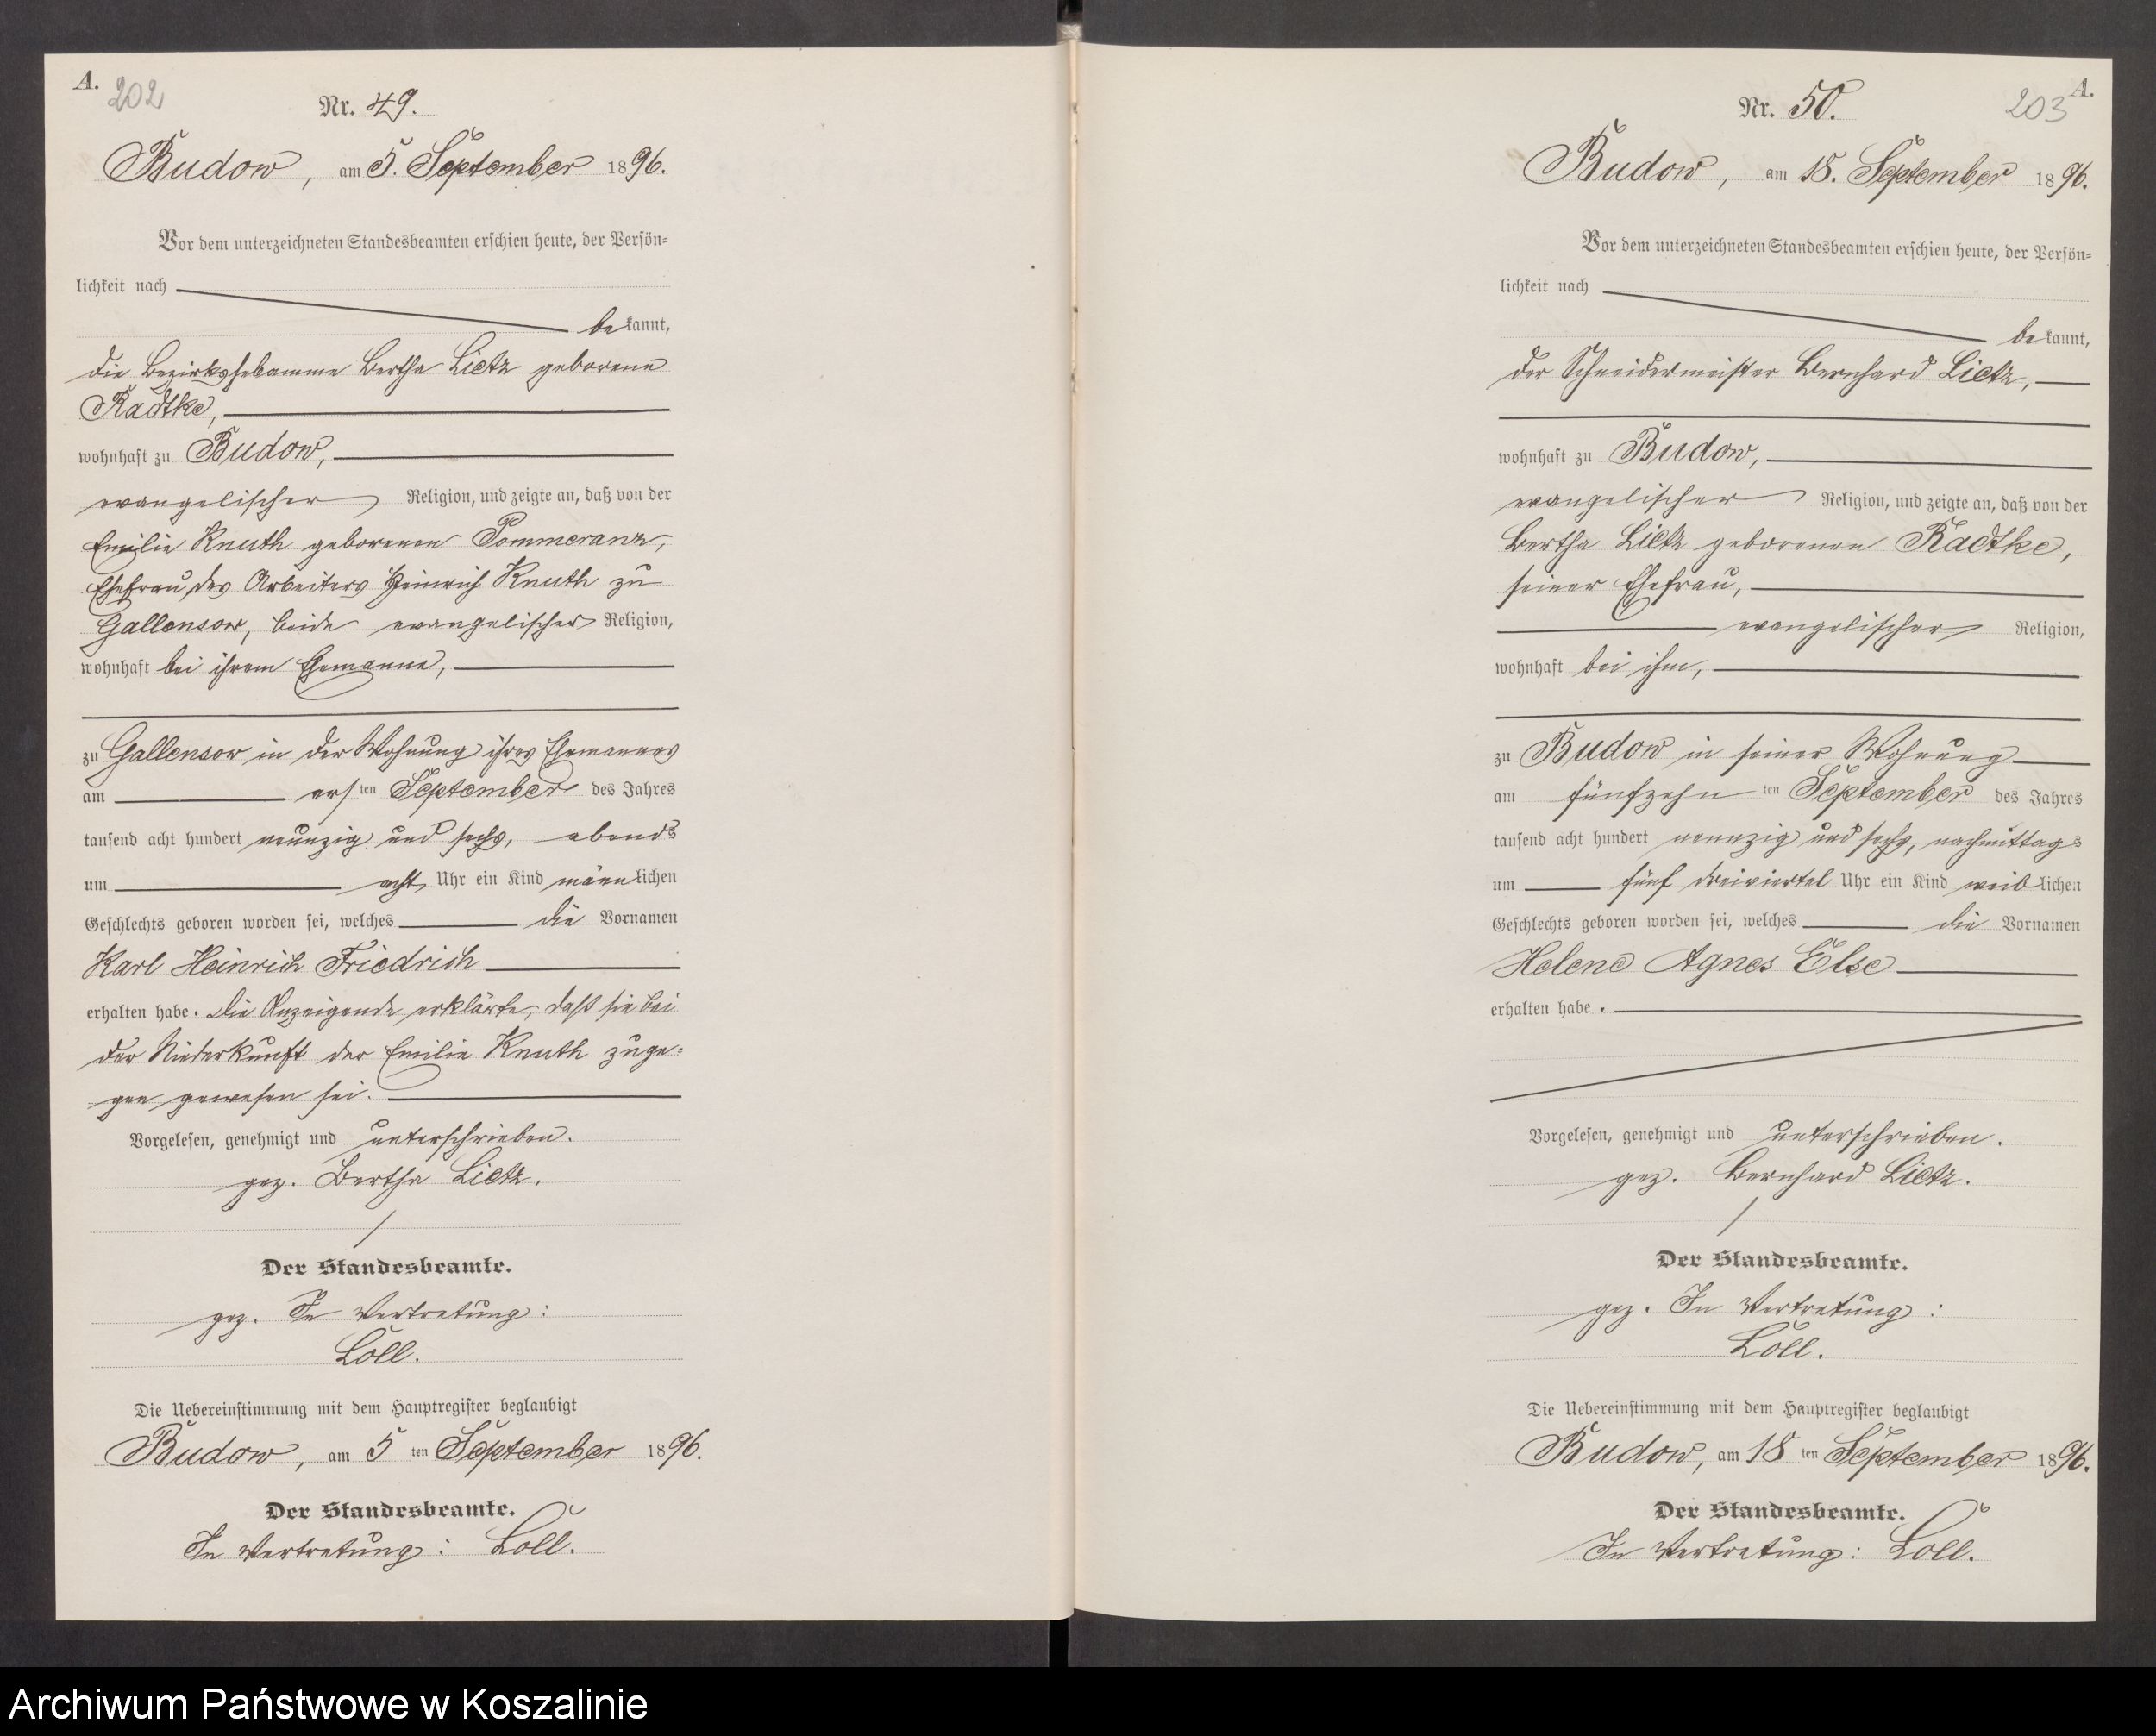 A.
202
Nr. 49.
Budow, am 5. September 1896.
Vor dem unterzeichneten Standesbeamten erschien heute, der Persön=
lichkeit nach
bekannt,
die Bezirkshebamme Bertha Lietz geborene
Radtke,
wohnhaft zu Budow,
evangelischer Religion, und zeigte an, daß von der
Emilie Knuth geborenen Pommeranz,
Ehefrau des Arbeiters Heinrich Knuth zu
Gallensow, beide evangelischer Religion,
wohnhaft bei ihrem Ehemanne,
zu Gallensow in der Wohnung ihres Ehemannes
am ersten September des Jahres
tausend acht hundert neunzig und sechs, abends
um acht Uhr ein Kind männlichen
Geschlechts geboren worden sei, welches die Vornamen
Karl Heinrich Friedrich
erhalten habe. Die Anzeigende erklärte, daß sie bei
der Niederkunft der Emilie Knuth zuge=
gen gewesen sei.
Vorgelesen, genehmigt und unterschrieben.
gez. Bertha Lietz.
Der Standesbeamte.
gez. In Vertretung:
Löll.
Die Uebereinstimmung mit dem Hauptregister beglaubigt
Budow, am 5 ten September 1896.
Der Standesbeamte.
In Vertretung: Löll.
A.
203
Nr. 50.
Budow, am 18. September 1896.
Vor dem unterzeichneten Standesbeamten erschien heute, der Persön=
lichkeit nach
bekannt,
der Schneidermeister Bernhard Lietz,
wohnhaft zu Budow,
evangelischer Religion, und zeigte an, daß von der
Bertha Lietz geborenen Radtke,
seiner Ehefrau,
evangelischer Religion,
wohnhaft bei ihm,
zu Budow in seiner Wohnung
am fünfzehnten September des Jahres
tausend acht hundert neunzig und sechs, nachmittags
um fünf dreiviertel Uhr ein Kind weiblichen
Geschlechts geboren worden sei, welches die Vornamen
Helene Agnes Else
erhalten habe.
Vorgelesen, genehmigt und unterschrieben.
gez. Bernhard Lietz.
Der Standesbeamte.
gez. In Vertretung:
Löll.
Die Uebereinstimmung mit dem Hauptregister beglaubigt
Budow, am 18 ten September 1896.
Der Standesbeamte.
In Vertretung: Löll.
Archiwum Państwowe w Koszalinie